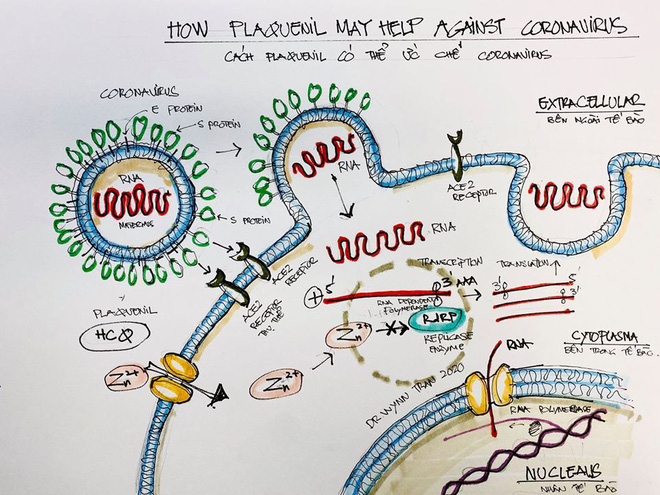 HOW PLAQUENIL MAY HELP AGAINST CORONAVIRUS
CÁCH PLAQUENIL CÓ THỂ ỨC CHẾ CORONAVIRUS
CORONAVIRUS
E PROTEIN
S PROTEIN
RNA
MATERIALS
S PROTEIN
RNA
ACE2
RECEPTOR
EXTRACELLULAR
BÊN NGOÀI TẾ BÀO
RNA
ACE2
RECEPTOR
ACE2
RECEPTOR
THỤ THỂ
TRANSCRIPTION
TRANSLATION
+ 5'
3' AAA
RNA DEPENDENT
POLYMERASE
3'
5'
3'
PLAQUENIL
HCQ
Zn2+
Zn2+
Zn2+
RdRP
REPLICASE
ENZYME
DR WYNN TRAN 2020
CYTOPLASMA
BÊN TRONG TẾ BÀO
RNA
RNA POLYMERASE
NUCLEAUS
NHÂN TẾ BÀO